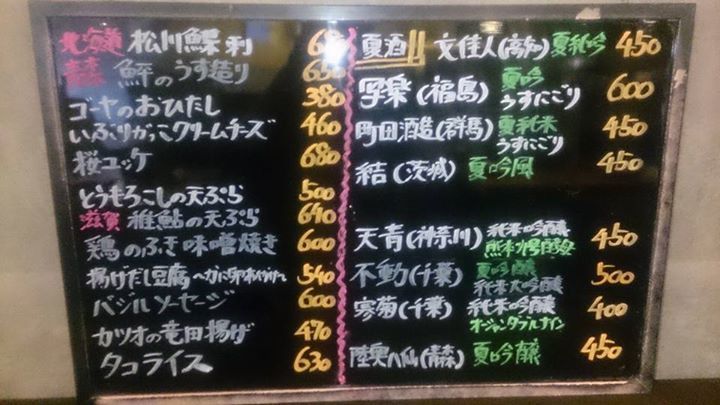 北海道 松川鰈刺 680
青森 鮃のうす造り 650
ゴーヤのおひたし 380
いぶりがっこクリームチーズ 460
桜ユッケ 680
とうもろこしの天ぷら 500
滋賀 稚鮎の天ぷら 640
鶏のふき味噌焼き 600
揚げだし豆腐 540
バジルソーセージ 600
カツオの竜田揚げ 470
タコライス 630
夏酒!! 文佳人(高知) 夏純吟 450
写楽(福島) 夏吟うすにごり 600
町田酒造(群馬) 夏純米うすにごり 450
結(茨城) 夏吟風 450
天青(神奈川) 純米吟醸 450
不動(千葉) 夏吟醸 純米大吟醸 500
寒菊(千葉) 純米吟醸 オーシャンタブルナイン 400
陸奥八仙(青森) 夏吟醸 450